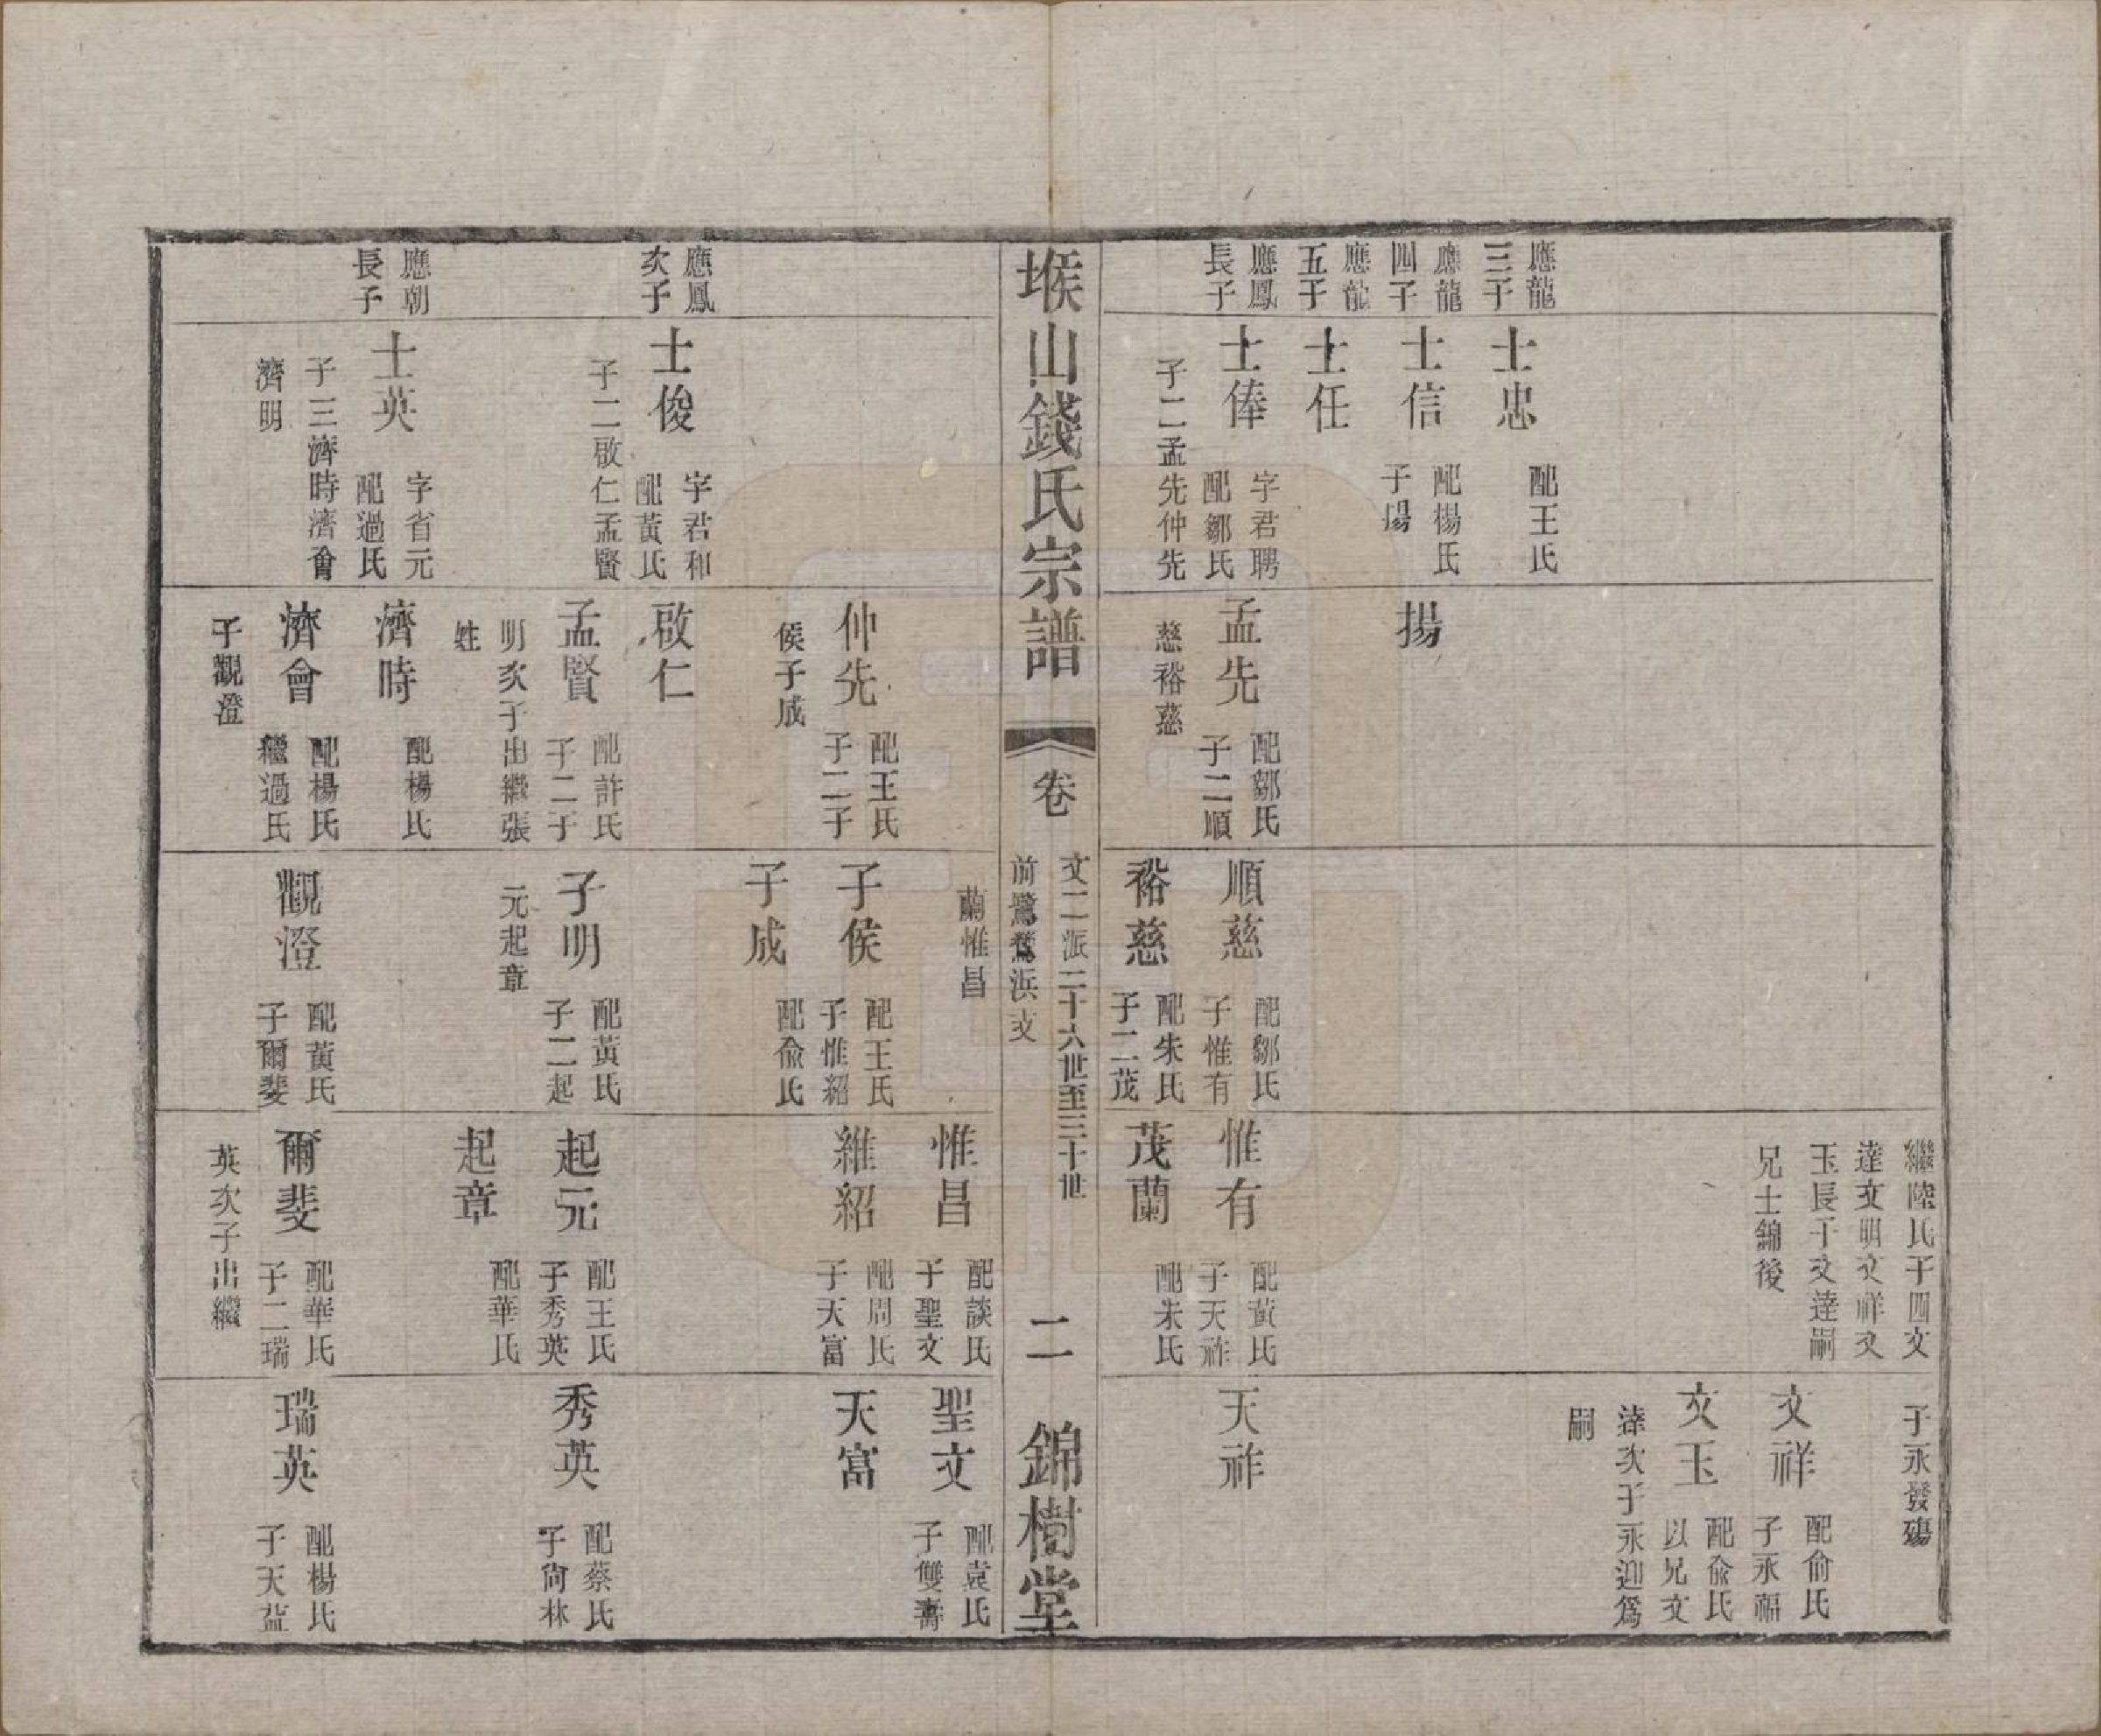 應龍
三子
應龍
四子
應龍
五子
應鳳
長子
士忠
配王氏
士信
配楊氏
子揚
士任
士俸
字君聘
配鄒氏
子二孟先仲先
揚
孟先
配鄒氏
子二順
慈裕慈
順慈
配鄒氏
子惟有
裕慈
配朱氏
子二茂
繼陸氏子四文
達文明文祥文
玉長子文達嗣
兄士錦後
惟有
配黃氏
子天祚
茂蘭
配朱氏
子永發殤
文祥
配俞氏
子永福
文玉
配俞氏
以兄文
達次子永迎爲
嗣
天祚
堠山錢氏宗譜
卷
文二派二十六世至三十世
前鷺鷥浜支
二
錦樹堂
應鳳
次子
應朝
長子
士俊
字君和
配黃氏
子二啟仁孟賢
士英
字省元
配過氏
子三濟時濟會
濟明
仲先
配王氏
子二子
侯子成
啟仁
孟賢
配許氏
子二子
明次子出繼張
姓
濟時
配楊氏
濟會
配楊氏
繼過氏
子觀澄
蘭惟昌
子侯
配王氏
子惟紹
子成
配俞氏
子明
配黃氏
子二起
元起章
觀澄
配黃氏
子爾斐
惟昌
配談氏
子聖文
維紹
配周氏
子天富
起元
配王氏
子秀英
起章
配華氏
爾斐
配華氏
子二瑞
英次子出繼
聖文
配袁氏
子雙壽
天富
秀英
配蔡氏
子尚林
瑞英
配楊氏
子天益